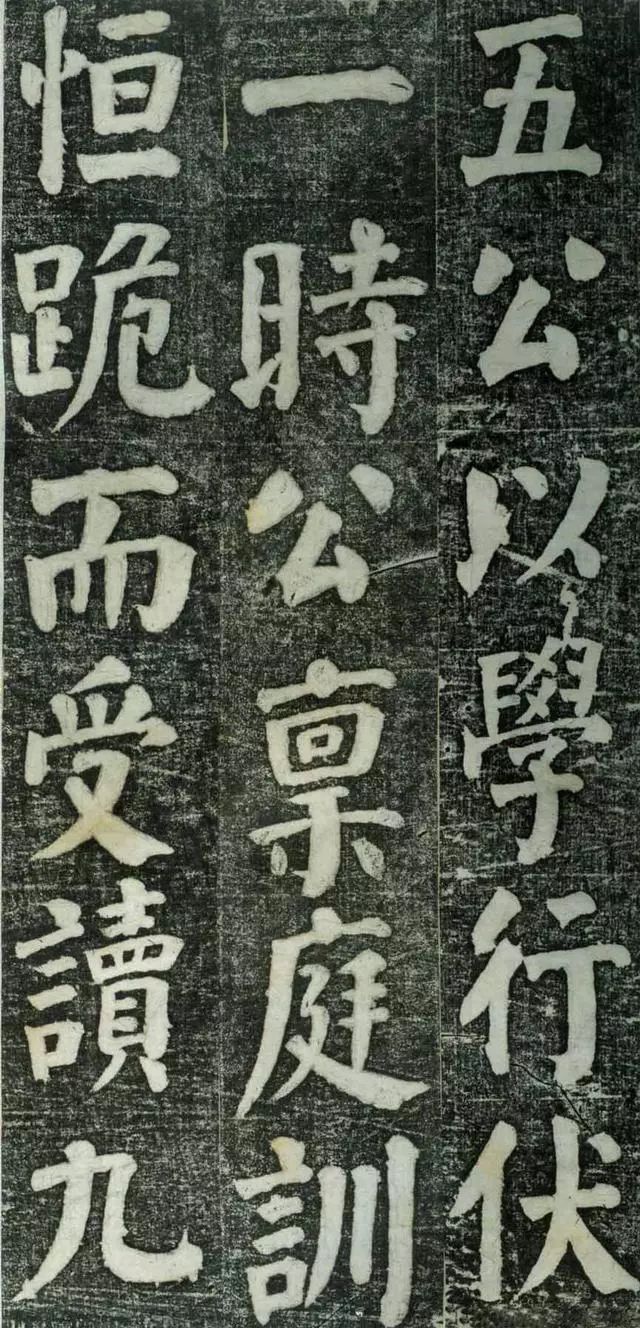 五公以學行伏
一時公禀庭訓
恒跪而受讀九